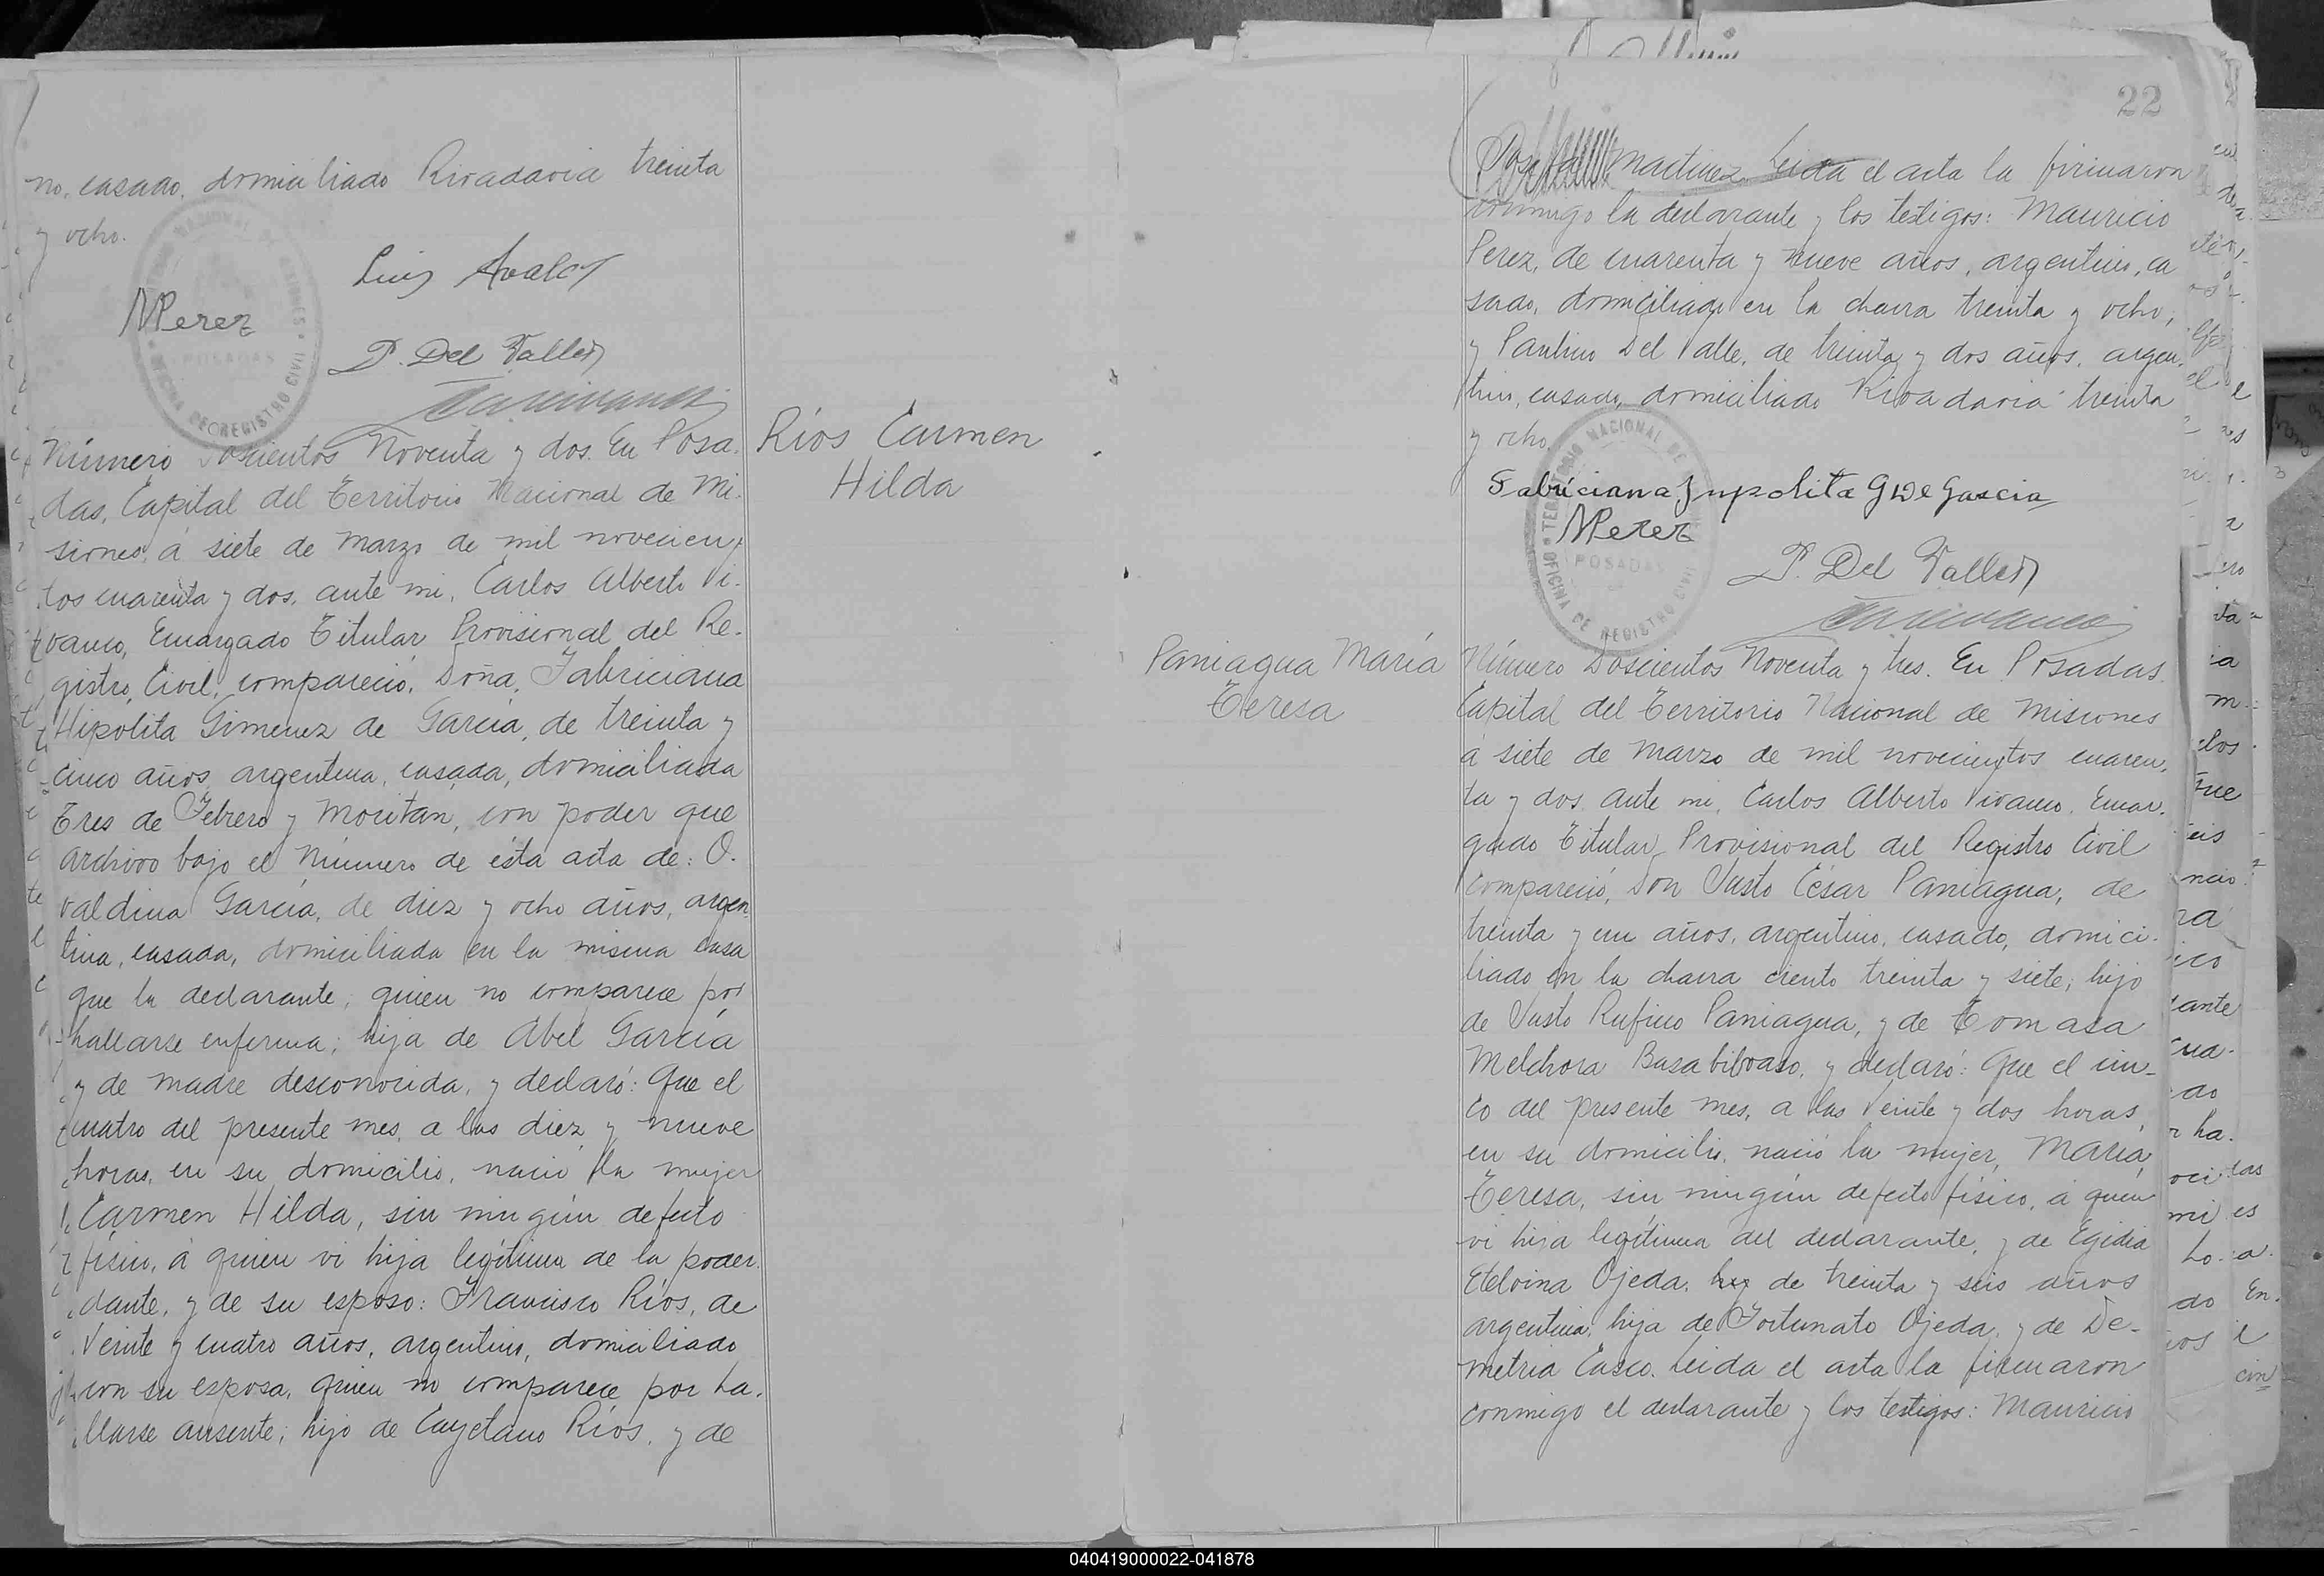 no, casado, domiciliado Rivadavia treinta
y ocho.
Luis Avalos
MPerez
P. Del Valle
Número Doscientos Noventa y dos. En Posa-
das, Capital del Territorio Nacional de Mi-
siones, á siete de Marzo de mil novecien-
tos cuarenta y dos, ante mi, Carlos Alberto Vi-
vanco, Encargado Titular Provisional del Re-
gistro Civil, compareció, Doña, Fabriciana
Hipolita Gimenez de García, de treinta y
cinco años, argentina, casada, domiciliada
Tres de Febrero y Moritan, con poder que
archivo bajo el Número de ésta acta de: O.
valdina García, de diez y ocho años, argen-
tina, casada, domiciliada en la misma casa
que la declarante, quien no comparece por
hallarse enferma; hija de Abel García
y de madre desconocida, y declaró: Que el
cuatro del presente mes, a las diez y nueve
horas, en su domicilio, nació la mujer
Carmen Hilda, sin ningún defecto
físico, á quien vi hija legítima de la poder-
dante, y de su esposo: Francisco Ríos, de
veinte y cuatro años, argentino, domiciliado
con su esposa, quien no comparece por ha-
llarse ausente; hijo de Cayetano Ríos, y de
Ríos Carmen
Hilda
22
Martinez. Leida el acta la firmaron
conmigo la declarante y los testigos: Mauricio
Perez, de cuarenta y nueve años, argentino, ca
sado, domiciliado en la chacra treinta y ocho,
y Paulino Del Valle, de treinta y dos años, argen-
tino, casado, domiciliado Rivadavia treinta
y ocho.
Fabriciana Jnpolita G De Garcia
MPerez
P. Del Valle
TERRITORIO NACIONAL DE
POSADAS
OFICINA DE REGISTRO CIVIL
Paniagua María
Teresa
Número Doscientos Noventa y tres. En Posadas
Capital del Territorio Nacional de Misiones
á siete de Marzo de mil novecientos cuaren-
ta y dos, ante mi, Carlos Alberto Vivanco, Encar-
gado Titular Provisional del Registro Civil
compareció, Don Justo César Paniagua, de
treinta y un años, argentino, casado, domici-
liado en la chacra ciento treinta y siete; hijo
de Justo Rufino Paniagua, y de Tomasa
Melchora Basabilvaso, y declaró: Que el cin-
co del presente mes, a las veinte y dos horas,
en su domicilio, nació la mujer, María
Teresa, sin ningún defecto físico, á quien
vi hija legítima del declarante, y de Egidia
Etelvina Ojeda, de treinta y seis años
argentina, hija de Fortunato Ojeda, y de De-
metria Casco. Leida el acta la firmaron
conmigo el declarante y los testigos: Mauricio
040419000022-041878